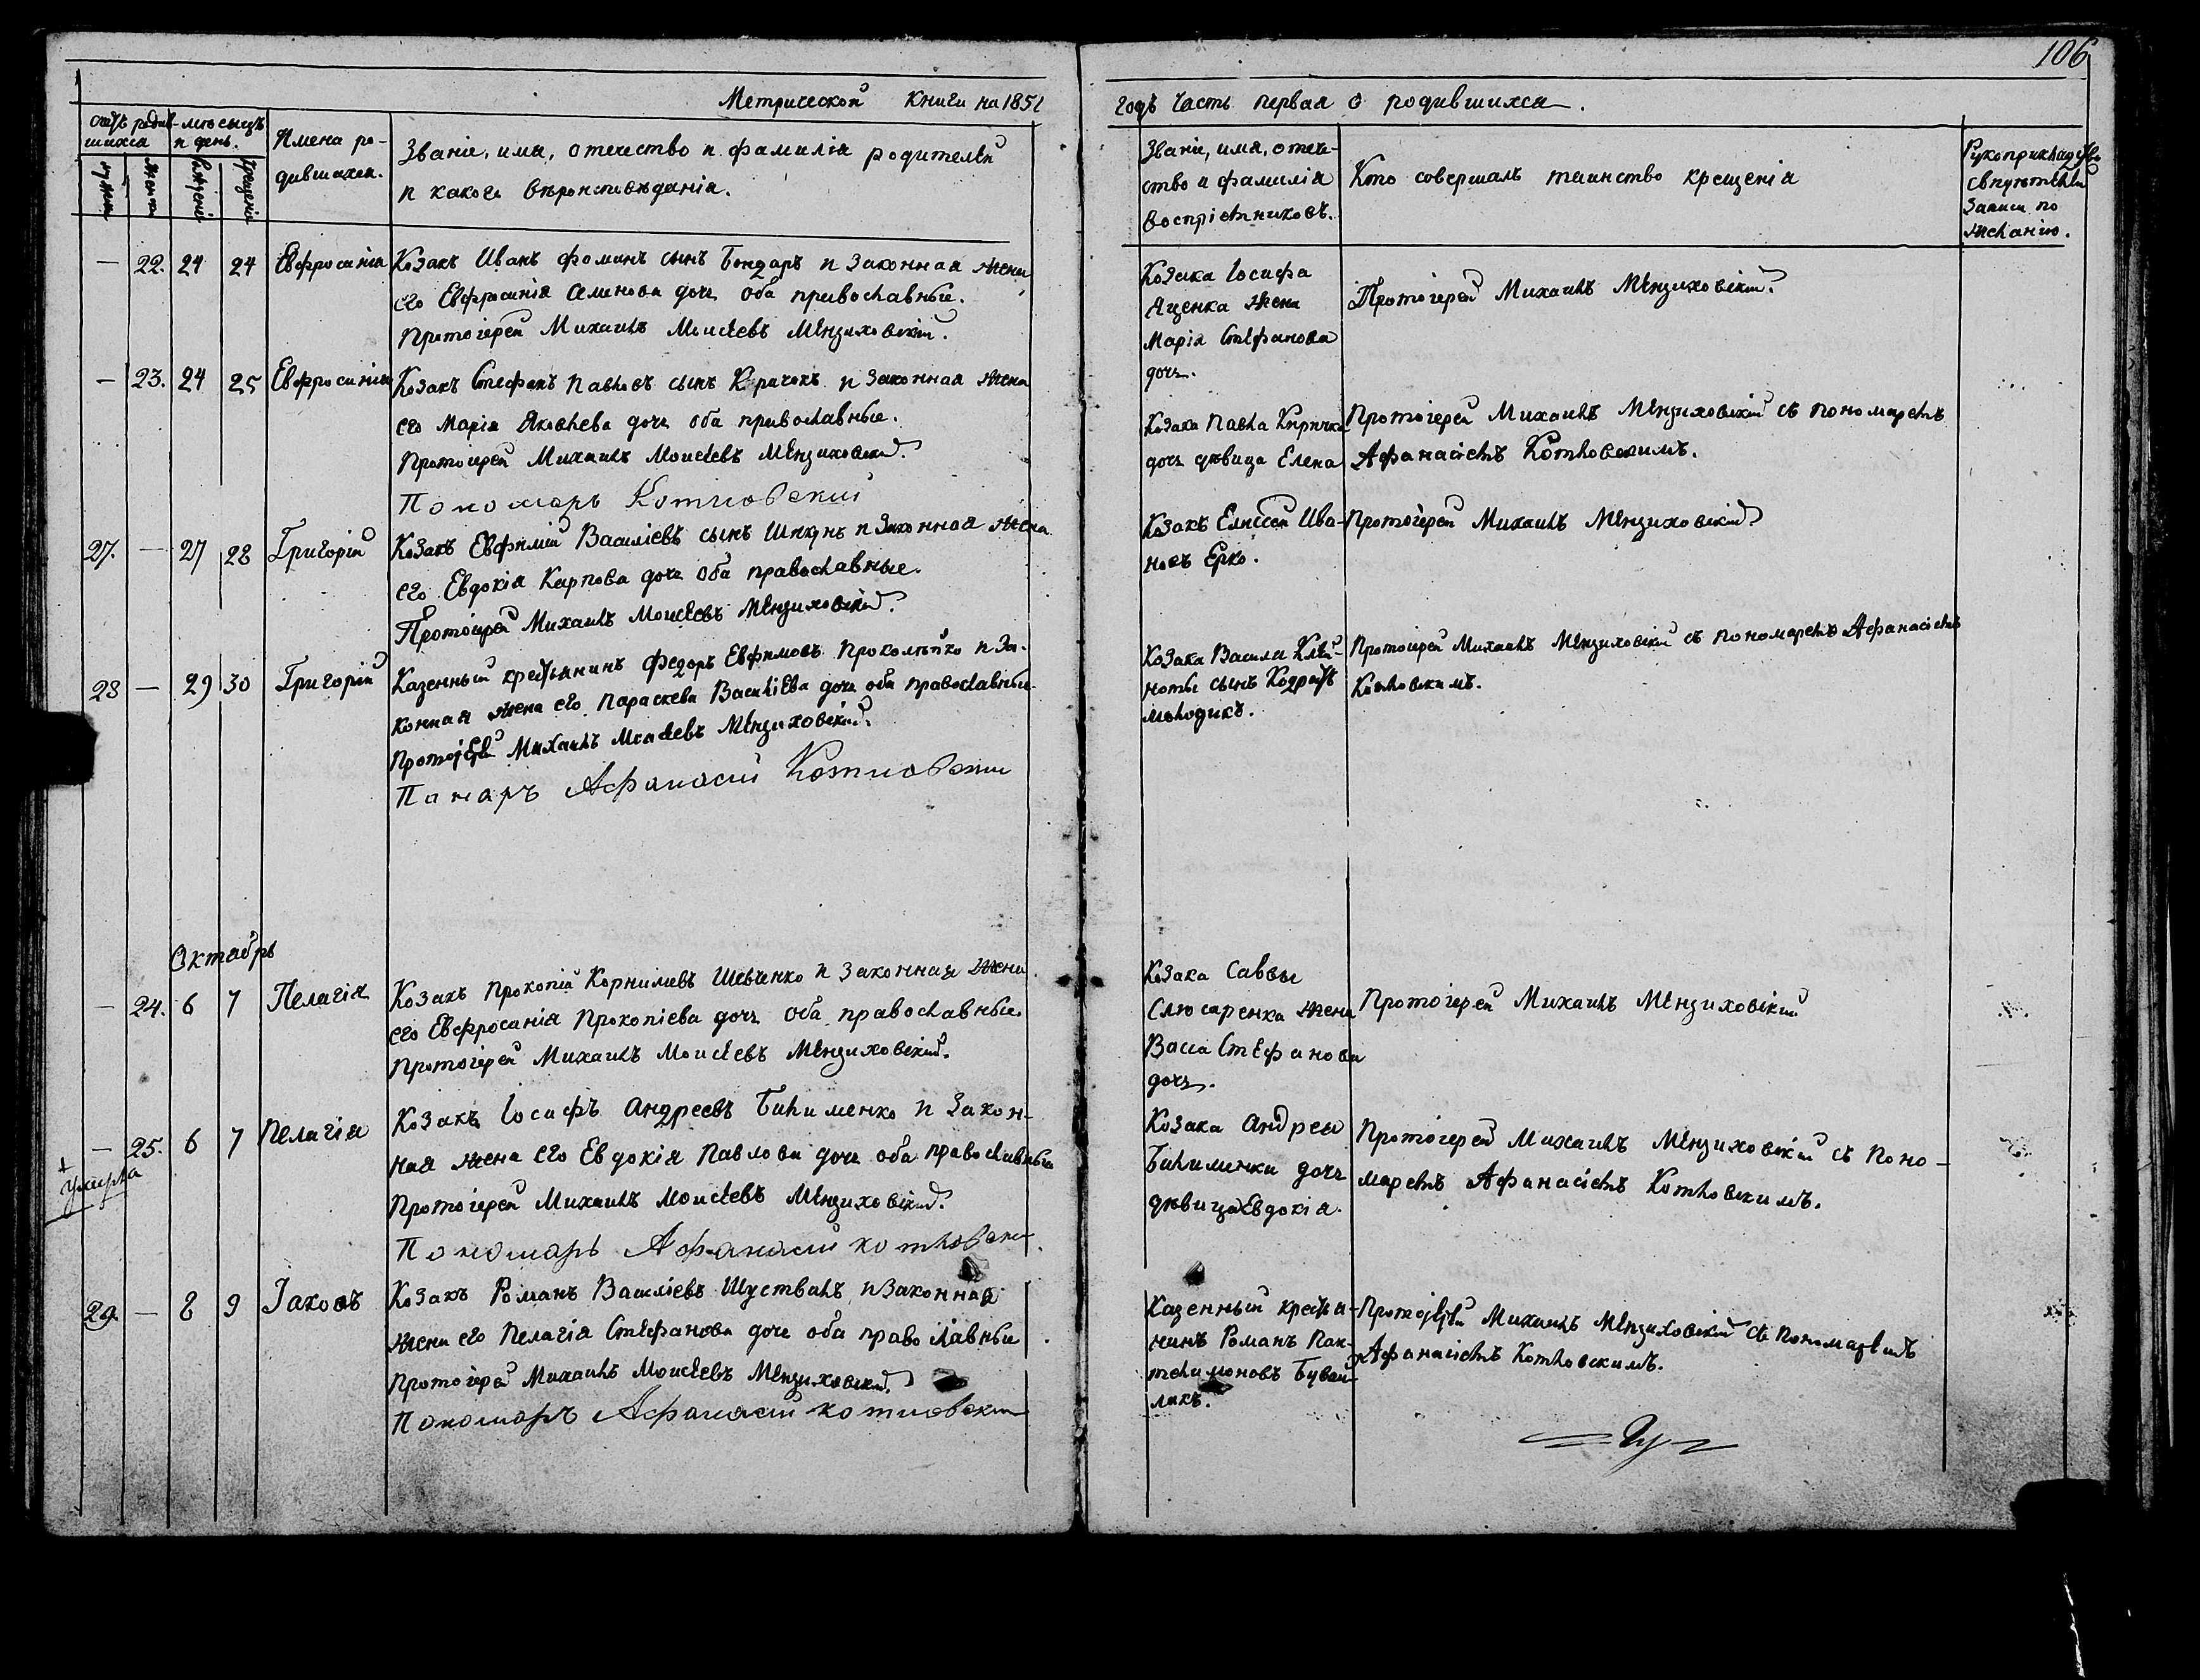 106
Метрической Книги на 1851 годъ Часть первая о родившихся.
Счетъ родившихся
Мѣсяцъ и день.
Мужска
Женска
Рожденія
Крещенія
Имена родившихся.
Званіе, имя, отчество и фамилія родителей
и какого вѣроисповѣданія.
Званіе, имя, отчество и фамилія
воспріемниковъ.
Кто совершалъ таинство крещенія
Рукоприкладство
свидѣтелей
записи по
желанію.
— 22. 24 24 Евфросинія
Козакъ Иванъ Фоминъ сынъ Бондаръ и законная жена
его Евфросинія Семенова дочь оба православные.
Протоіерей Михаилъ Моисеевъ Мензиховскій.
Козака Іосифа
Яценка жена
Марія Стефанова
дочь.
Протоіерей Михаилъ Мензиховскій.
— 23. 24 25 Евфросинія
Козакъ Стефанъ Павловъ сынъ Киричокъ и законная жена
его Марія Яковлева дочь оба православные.
Протоіерей Михаилъ Моисеевъ Мензиховскій.
Пономарь Котловскій
Козака Павла Киричка
дочь дѣвица Елена
Протоіерей Михаилъ Мензиховскій съ пономаремъ
Афанасіемъ Котловскимъ.
27. — 27 28 Григорій
Козакъ Евфимій Василіевъ сынъ Шкунь и законная жена
его Евдокія Карпова дочь оба православные.
Протоіерей Михаилъ Моисеевъ Мензиховскій.
Козакъ Елисей Ива-
новъ Ерко.
Протоіерей Михаилъ Мензиховскій
28 — 29 30 Григорій
Казенный крестьянинъ Федоръ Евфимовъ Проколѣйко и за-
конная жена его Параскева Василіева дочь оба православные.
Протоіерей Михаилъ Моисеевъ Мензиховскій.
Панарь Афанасій Котловскій
Козака Василя
ноты сынъ Кодратъ
молодикъ.
Протоіерей Михаилъ Мензиховскій съ пономаремъ Афанасіемъ
Котловскимъ.
Октябрь
— 24. 6 7 Пелагія
Козакъ Прокопій Корниліевъ Шевченко и законная жена
его Евфросинія Прокопіева дочь оба православные.
Протоіерей Михаилъ Моисеевъ Мензиховскій.
Козака Саввы
Слюсаренка жена
Васса Стефанова
дочь.
Протоіерей Михаилъ Мензиховскій
— 25. 6 7 Пелагія
+ умерла
Козакъ Іосифъ Андреевъ Билименко и закон-
ная жена его Евдокія Павлова дочь оба православные
Протоіерей Михаилъ Моисеевъ Мензиховскій.
Пономарь Афанасій Котловскій
Козака Андрея
Билименки дочь
дѣвица Евдокія.
Протоіерей Михаилъ Мензиховскій съ поно-
маремъ Афанасіемъ Котловскимъ.
29. — 8 9 Іаковъ
Козакъ Романъ Василіевъ Шуствалъ и законная
жена его Пелагія Стефанова дочь оба православные
Протоіерей Михаилъ Моисеевъ Мензиховскій.
Пономарь Афанасій Котловскій
Казенный крестья-
нинъ Романъ Пан-
телимоновъ Бувай-
ликъ.
Протоіерей Михаилъ Мензиховскій съ пономаремъ
Афанасіемъ Котловскимъ.